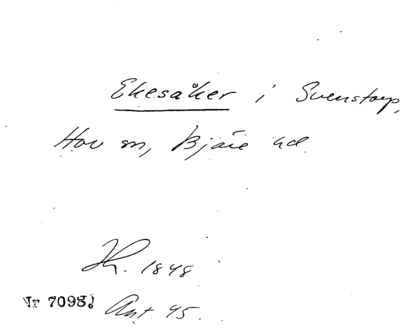 Ekesåker i Svenstorp,
Hov sn, Bjäre hd
Kr. 1848
Nr 7098.
Ant 45.